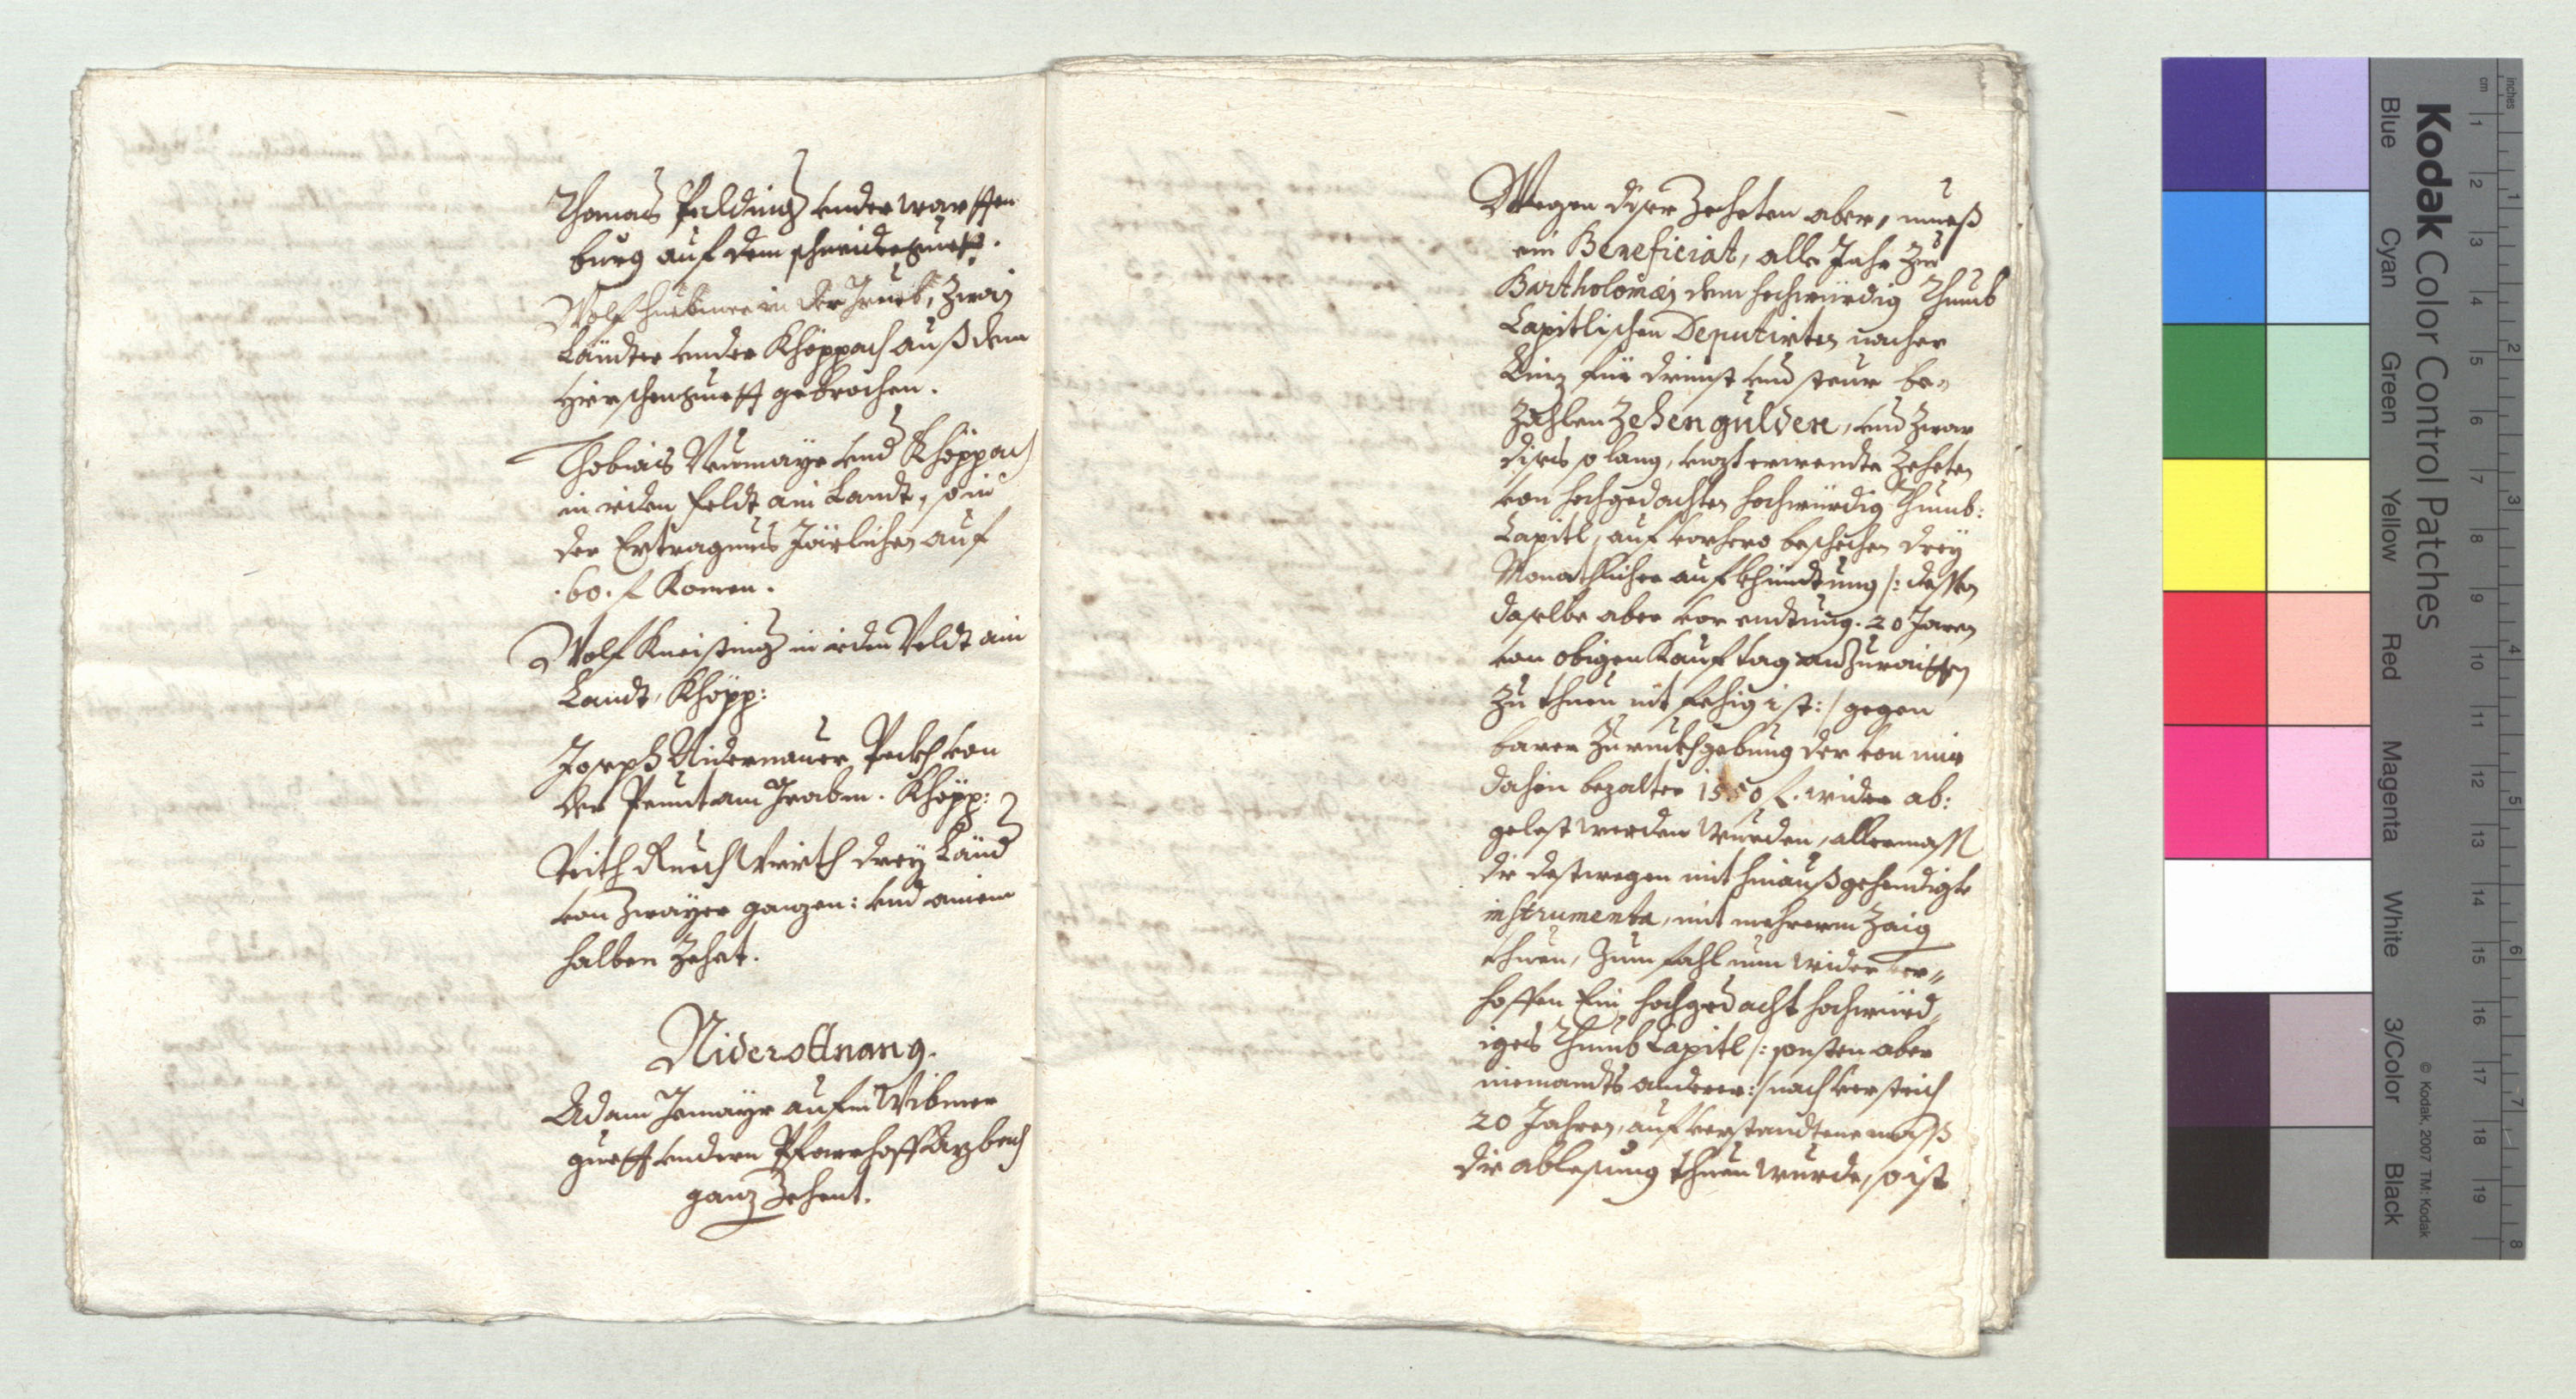 Thomas Palding under wartten
burg auf dem schneiderguett.
Wolf Huebmer in der Grueb, zwai
Ländter under Khöppach auß dem
Hierschengueth gebrochen.
Thobias Neumayr und Khöppach
in iden feldt ain Landt, so in
der Ertragnus Järlichen auf
.60. f Komen.
Wolf Kneisting in iden Veldt ain
Landt, Khöpp:
Joseph Nidernauer Peckh von
der Peunt am Graben. Khöpp:
Veith Wirth drey Länd
von zwayer ganzen: und ainem
halben Zehet.
Niderottnang.
Adam aufm Wibmer
gueth undern Pfarrhoff Azbach
ganz Zehent.
Wegen diser Zeheten aber, mueß
ein Beneficiat, alle Jahr zu
Bartholomæj dem hochwürdig Thumb
Capitlischen Deputirten nacher
Linz für dienst und steur be=
zahlen Zehen gulden, und zwar
dises so lang, ernente Zeheten
von hochgedachten hochwürdig Thumb:
Capitl, auf vorhero beschehen drey
Monathliche aufkhündtung /: dessen
daselbe aber vor endtung. 20 Jaren
von obigen Kauftag anzuraitten
zu thuen nit fehig ist :/ gegen
barer Zuruckhgebung der von mir
dahin bezalten 1550 f. wider ab:
gelest werden wurden, allermass
die destwegen mit hinauß gehendigte
instrumenta, mit mehrerm zaig
thuen, Zum fahl nun wider ver=
hoffen Ein hochgedacht hochwürd=
iges Thumb Capitl /: sonsten aber
niemandts anderer :/ nach verstrich
20 Jahren, auf verstandtene mass
die ablesung thuen wurde, so ist
Kodak Color Control Patches
Blue Cyan Green Yellow Red Magenta White 3/Color Black
© Kodak, 2007 TM: Kodak
inches 1 2 3 4 5 6 7 8
cm 1 2 3 4 5 6 7 8 9 10 11 12 13 14 15 16 17 18 19